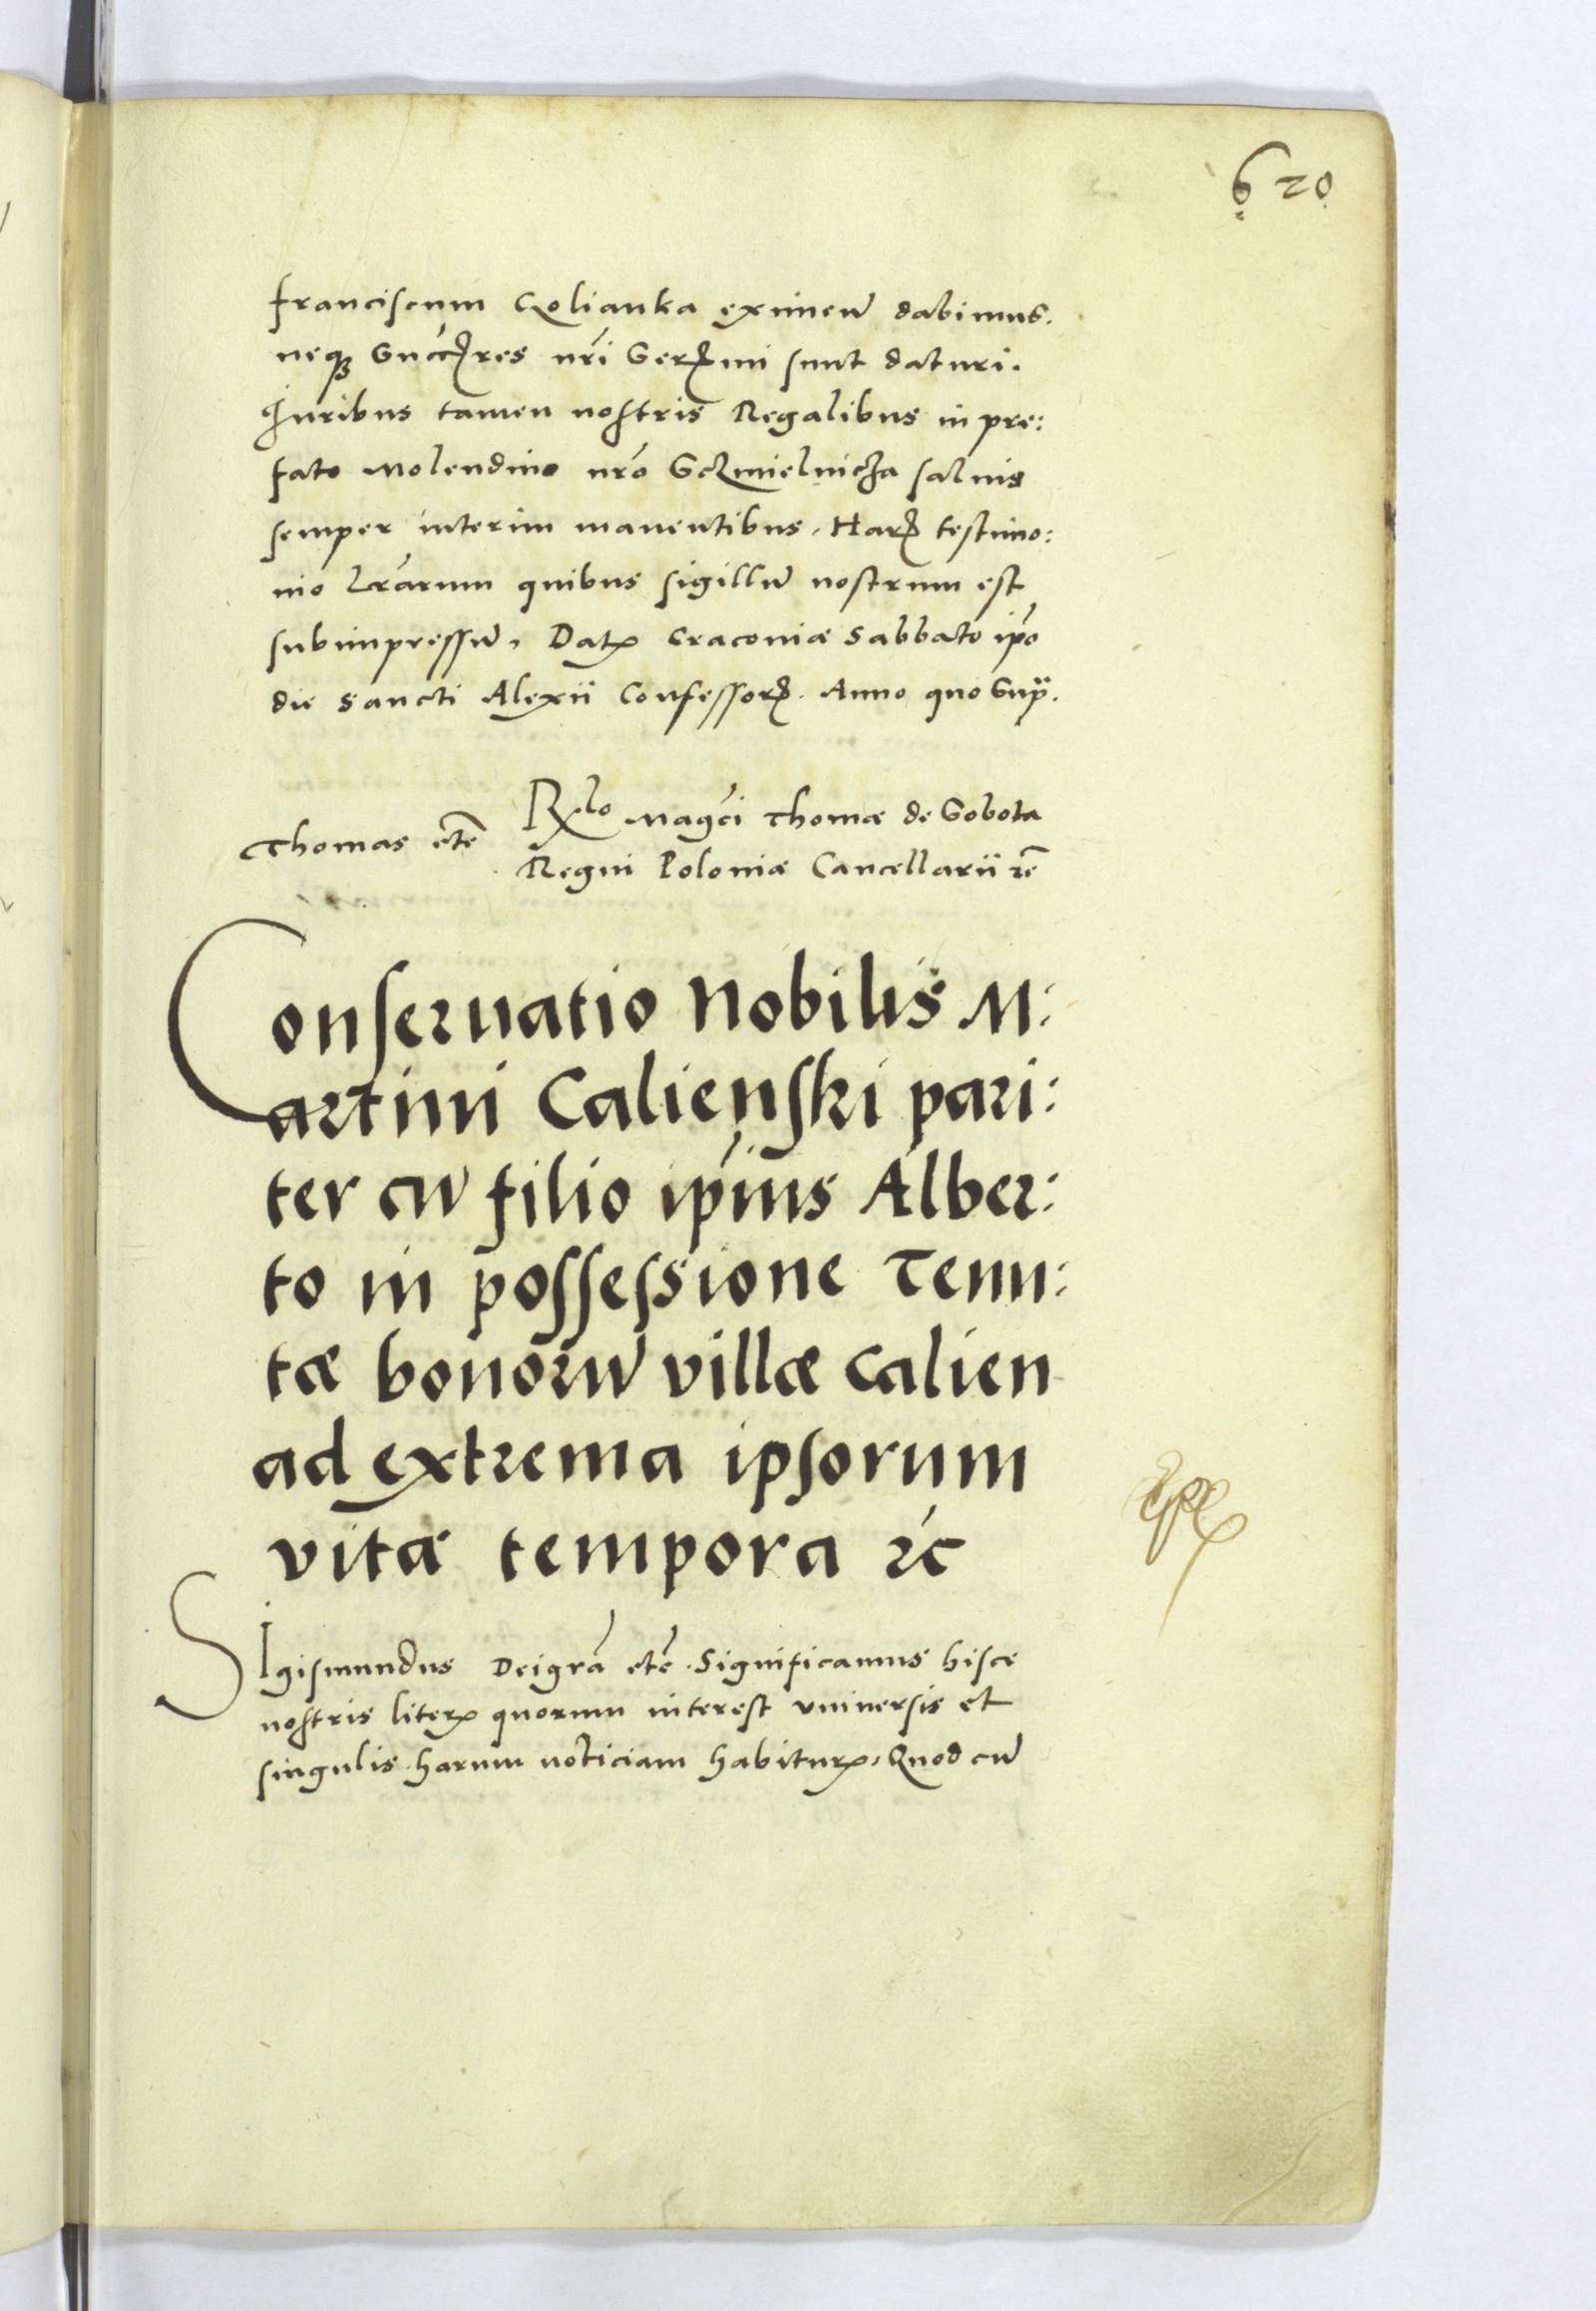 620
Franciscum Czolianka eximeđ dabimus.
neqꝫ Succꝫres nr̃i Serꝫmi sunt daturi.
Juribus tamen nostris Regalibus in pre:
fato Molendino nr̃o salvis
semper interim manentibus. Harꝫ testimo:
nio Lr̃arum quibus sigillũ nostrum est
subimpressũ. Datꝫ Cracoviæ Sabbato ip̃o
die Sancti Alexii Confessorꝫ. Anno quo Sup̃.
Thomas etc̃
Rlo Magci Thomæ de Sobota
Regni Poloniæ Cancellarii ꝛc̃
Conseruatio Nobilis M:
artini Calienski pari:
ter cũ filio ip̃ius Alber:
to in possessione Tenu:
tæ bonorũ villæ Calien
ad extrema ipsorum
vitæ tempora ꝛc
SIgismundus Dei grã etc̃. Significamus hisce
nostris literꝫ quorum interest vniuersis et
singulis. harum noticiam habiturꝫ. Quod cũ